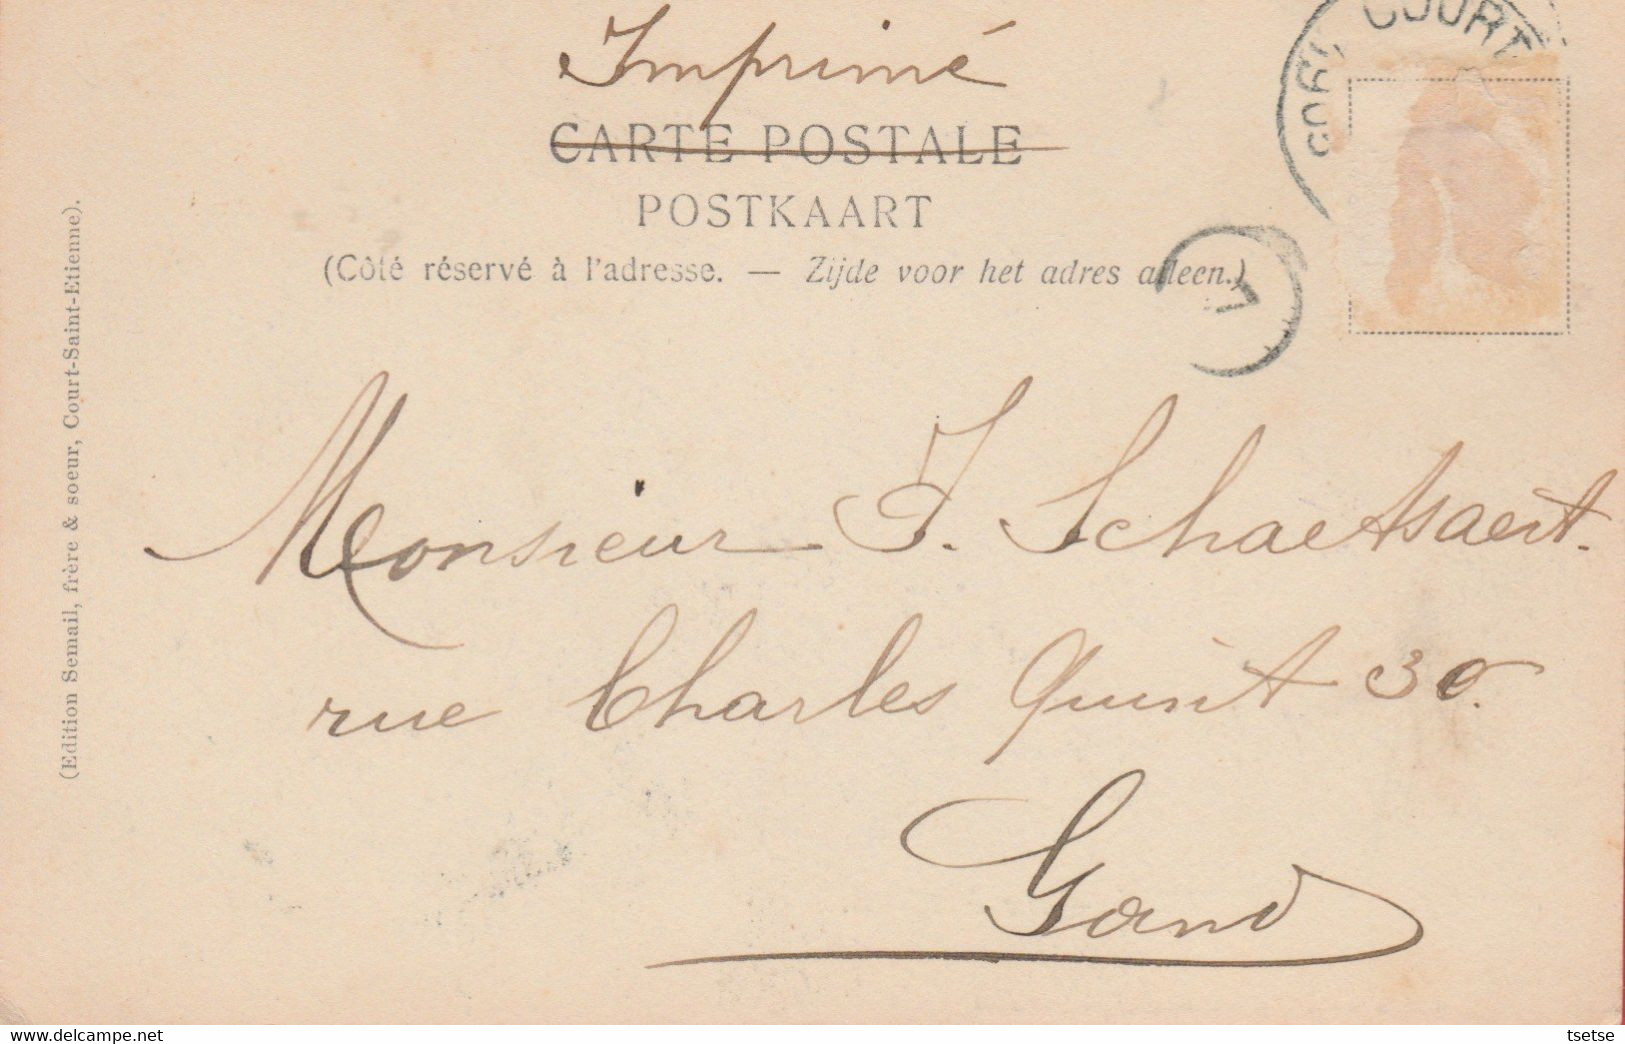 Imprimé
CARTE POSTALE
POSTKAART
(Côté réservé à l'adresse. — Zijde voor het adres alleen.)
COURT
Monsieur J. Schaetsaert.
rue Charles Quint 30.
Gand
(Edition Semail, frère & soeur, Court-Saint-Etienne).
www.delcampe.net
tsetse